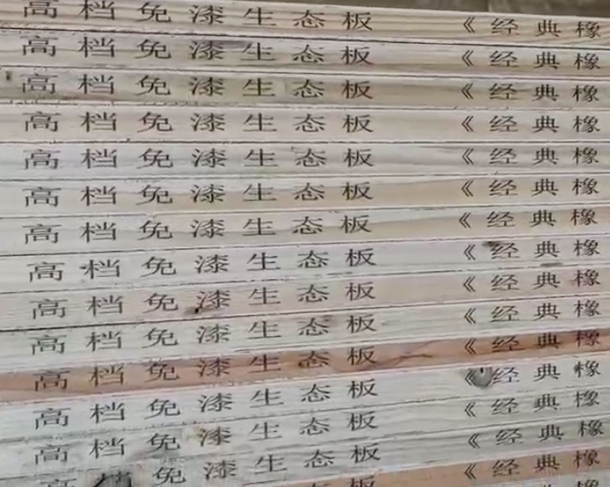 高档免漆生态板 《经典橡
高档免漆生态板 《经典橡
高档免漆生态板 《经典橡
高档免漆生态板 《经典橡
高档免漆生态板 《经典橡
高档免漆生态板 《经典橡
高档免漆生态板 《经典橡
高档免漆生态板 《经典橡
高档免漆生态板 《经典橡
高档免漆生态板 《经典橡
高档免漆生态板 《经典橡
高档免漆生态板 《经典橡
高档免漆生态板 《经典橡
免漆生态板 《经典橡